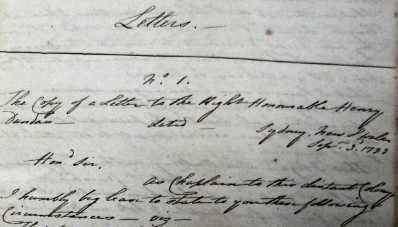 Letters.—
No. 1.
The Copy of a Letter to the Right Honourable Henry
Dundas — dated — Sydney, New Wales
Sepr. 3. 1793
Hond. Sir.
As Chaplain to this distant Colony
I humbly beg leave to state to you these following
Circumstances — viz —